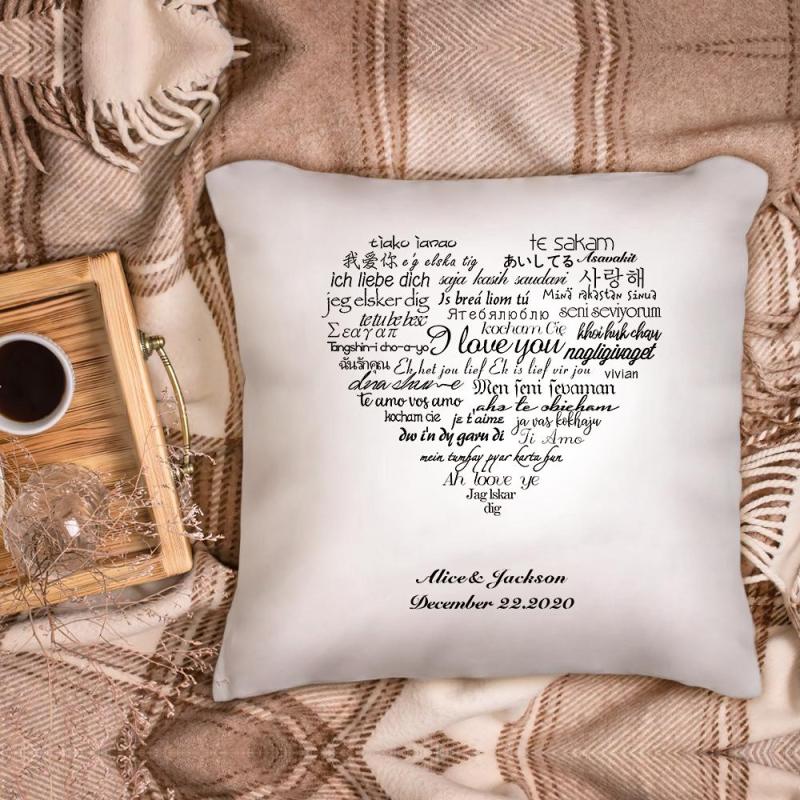 tiako ianao te sakam
我爱你 e'g elska tig あいしてる Asavakit
ich liebe dich saja kasih saudari 사랑해
jeg elsker dig Is breá liom tú Minä rakastan sinua
te tu be besc Ятебялюблю seni seviyorum
Σεαγαπ kocham Cię khoi huk chau
Tangshin-i cho-a-yo I love you nagligivaget
ฉันรักคุณ Ek het jou lief Ek is lief vir jou vivian
dna shum-e Men seni sevaman
te amo vos amo aha te obicham
kocham cie je t'aime ja vas kokhaju
dw i'n dy garu di Ti Amo
mein tumhay pyar karta hun
Ah loove ye
Jag lskar
dig
Alice & Jackson
December 22.2020